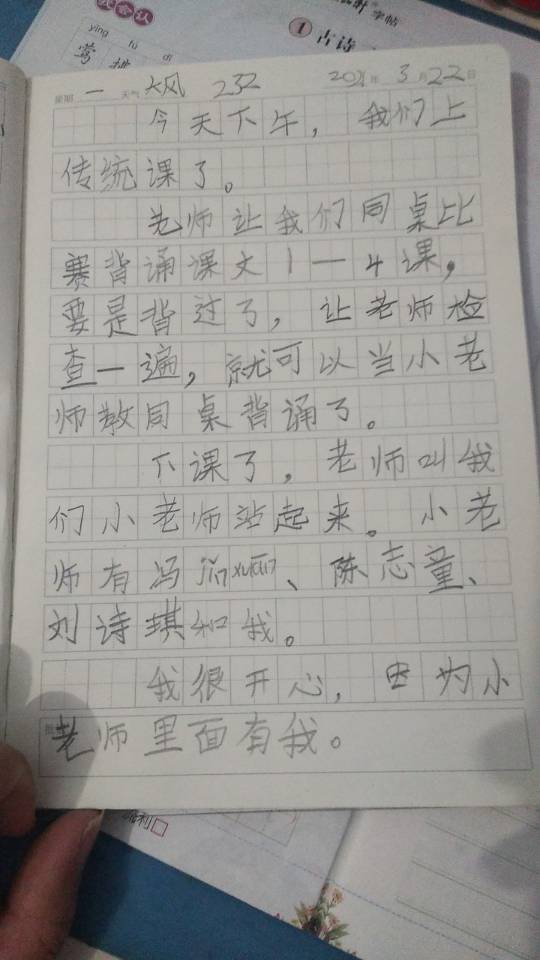 我会认
字帖
yīng fu di
莺 拂
1 古诗
星期 一 天气 大风 232 2021年 3月22日
今天下午，我们上
传统课了。
老师让我们同桌比
赛背诵课文1一4课，
要是背过了，让老师检
查一遍，就可以当小老
师教同桌背诵了。
下课了，老师叫我
们小老师站起来。小老
师有冯jīn xuān、陈志童、
刘诗琪和我。
我很开心，因为小
老师里面有我。